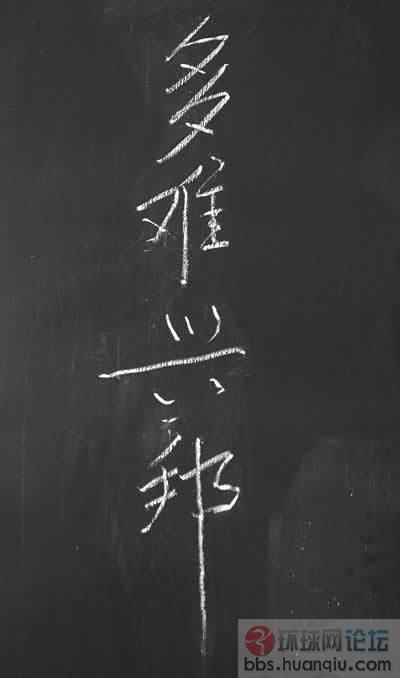 多难兴邦
环球网论坛
bbs.huanqiu.com